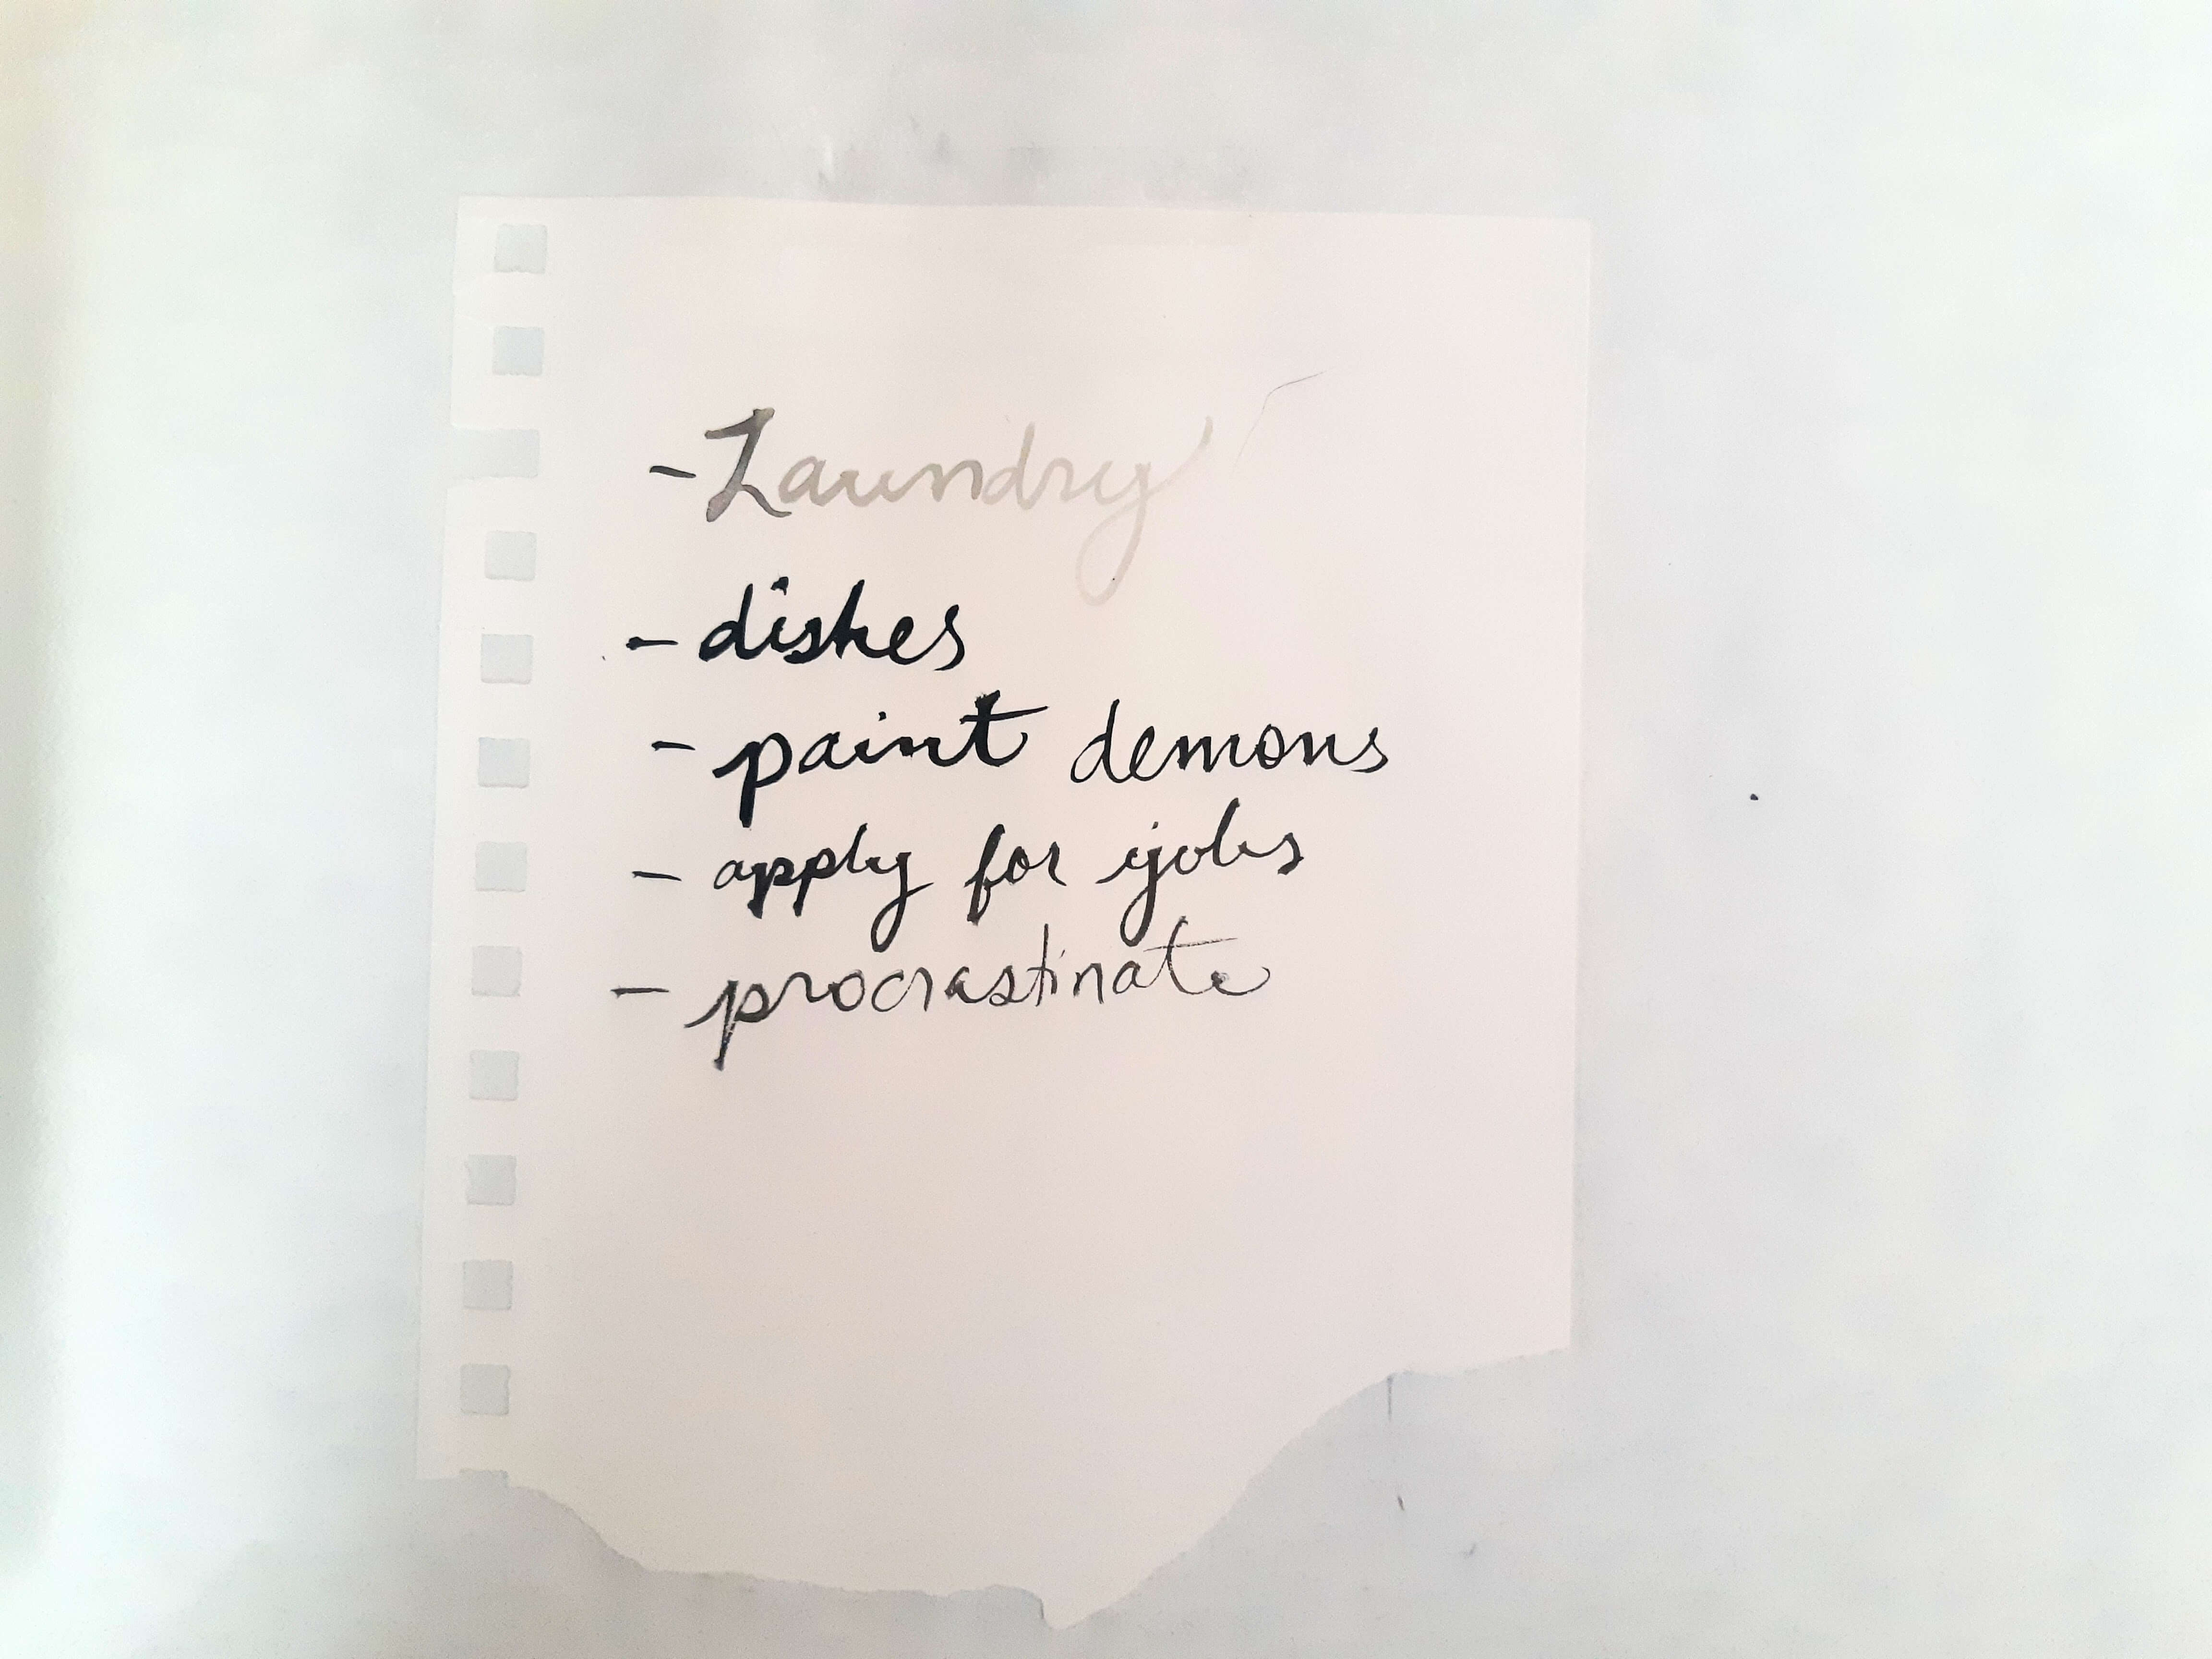 - Laundry
- dishes
- paint demons
- apply for jobs
- procrastinate